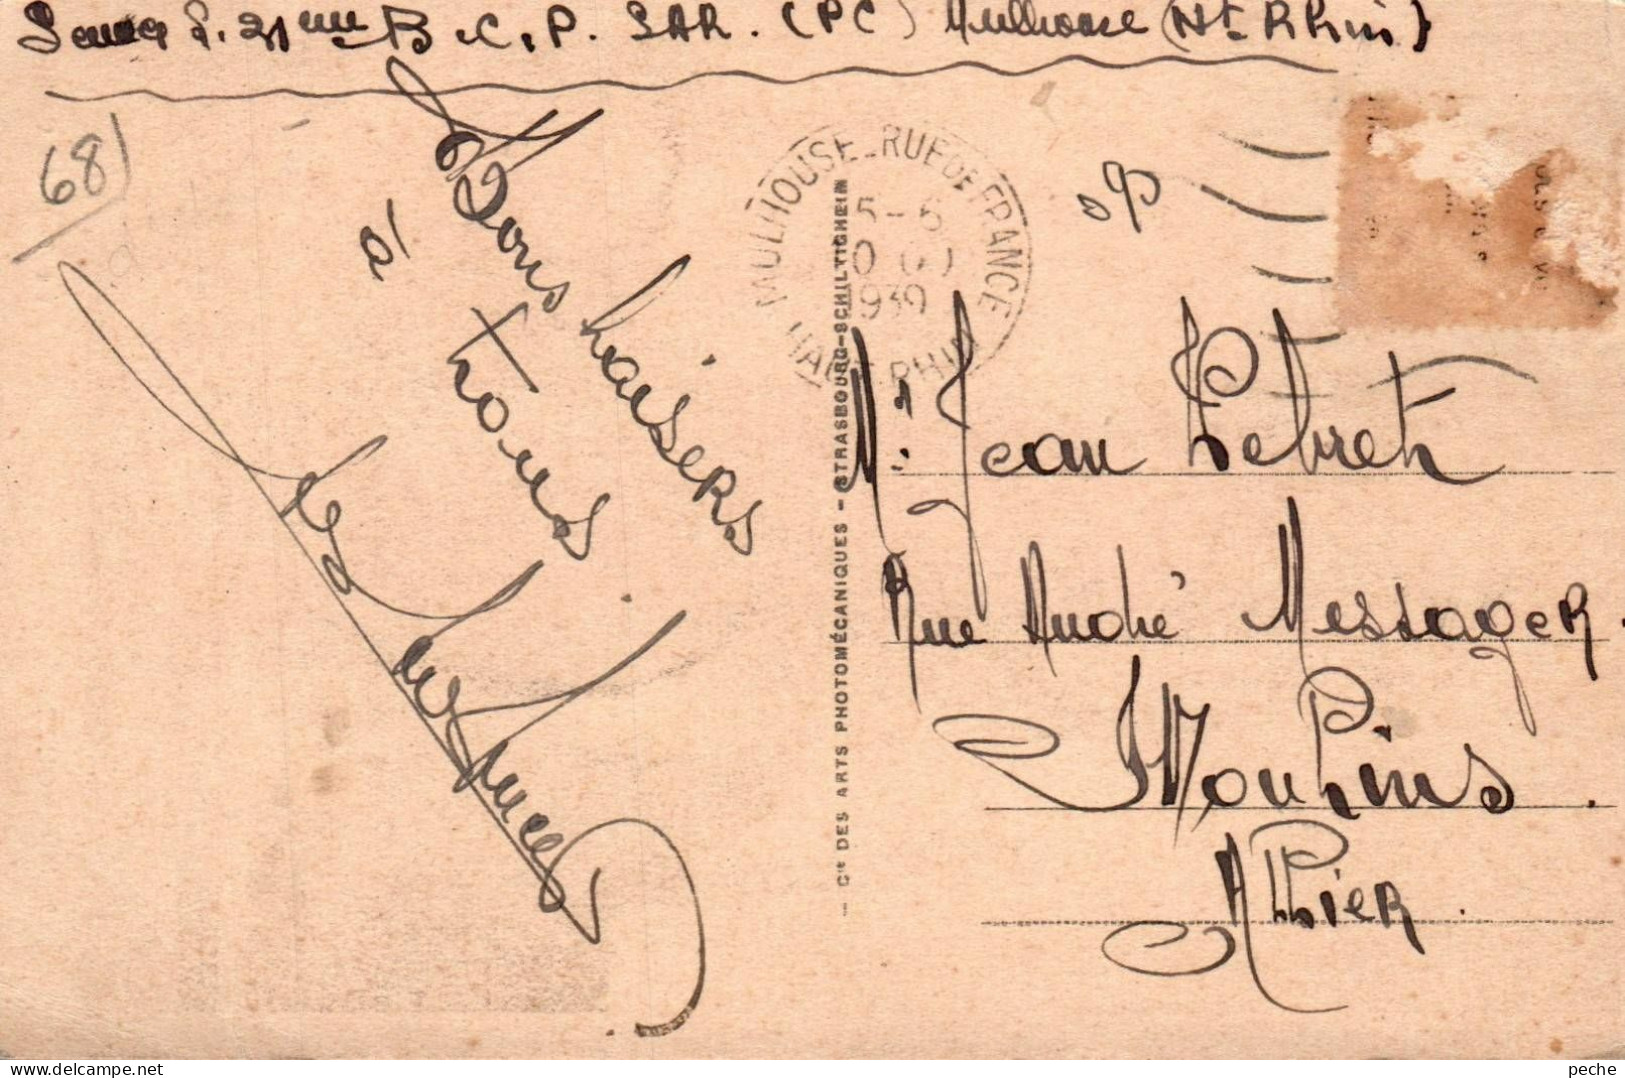 31ème B.C.P. SAR. (PC) Mulhouse (Ht Rhin)
68
Bons baisers
à
tous
MULHOUSE - RUE DE FRANCE
5 - 6
1939
HAUT-RHIN
- Cie DES ARTS PHOTOMÉCANIQUES - STRASBOURG-SCHILTIGHEIM
Mr Jean Lebret
Rue André Messager
Moulins.
Allier.
peche